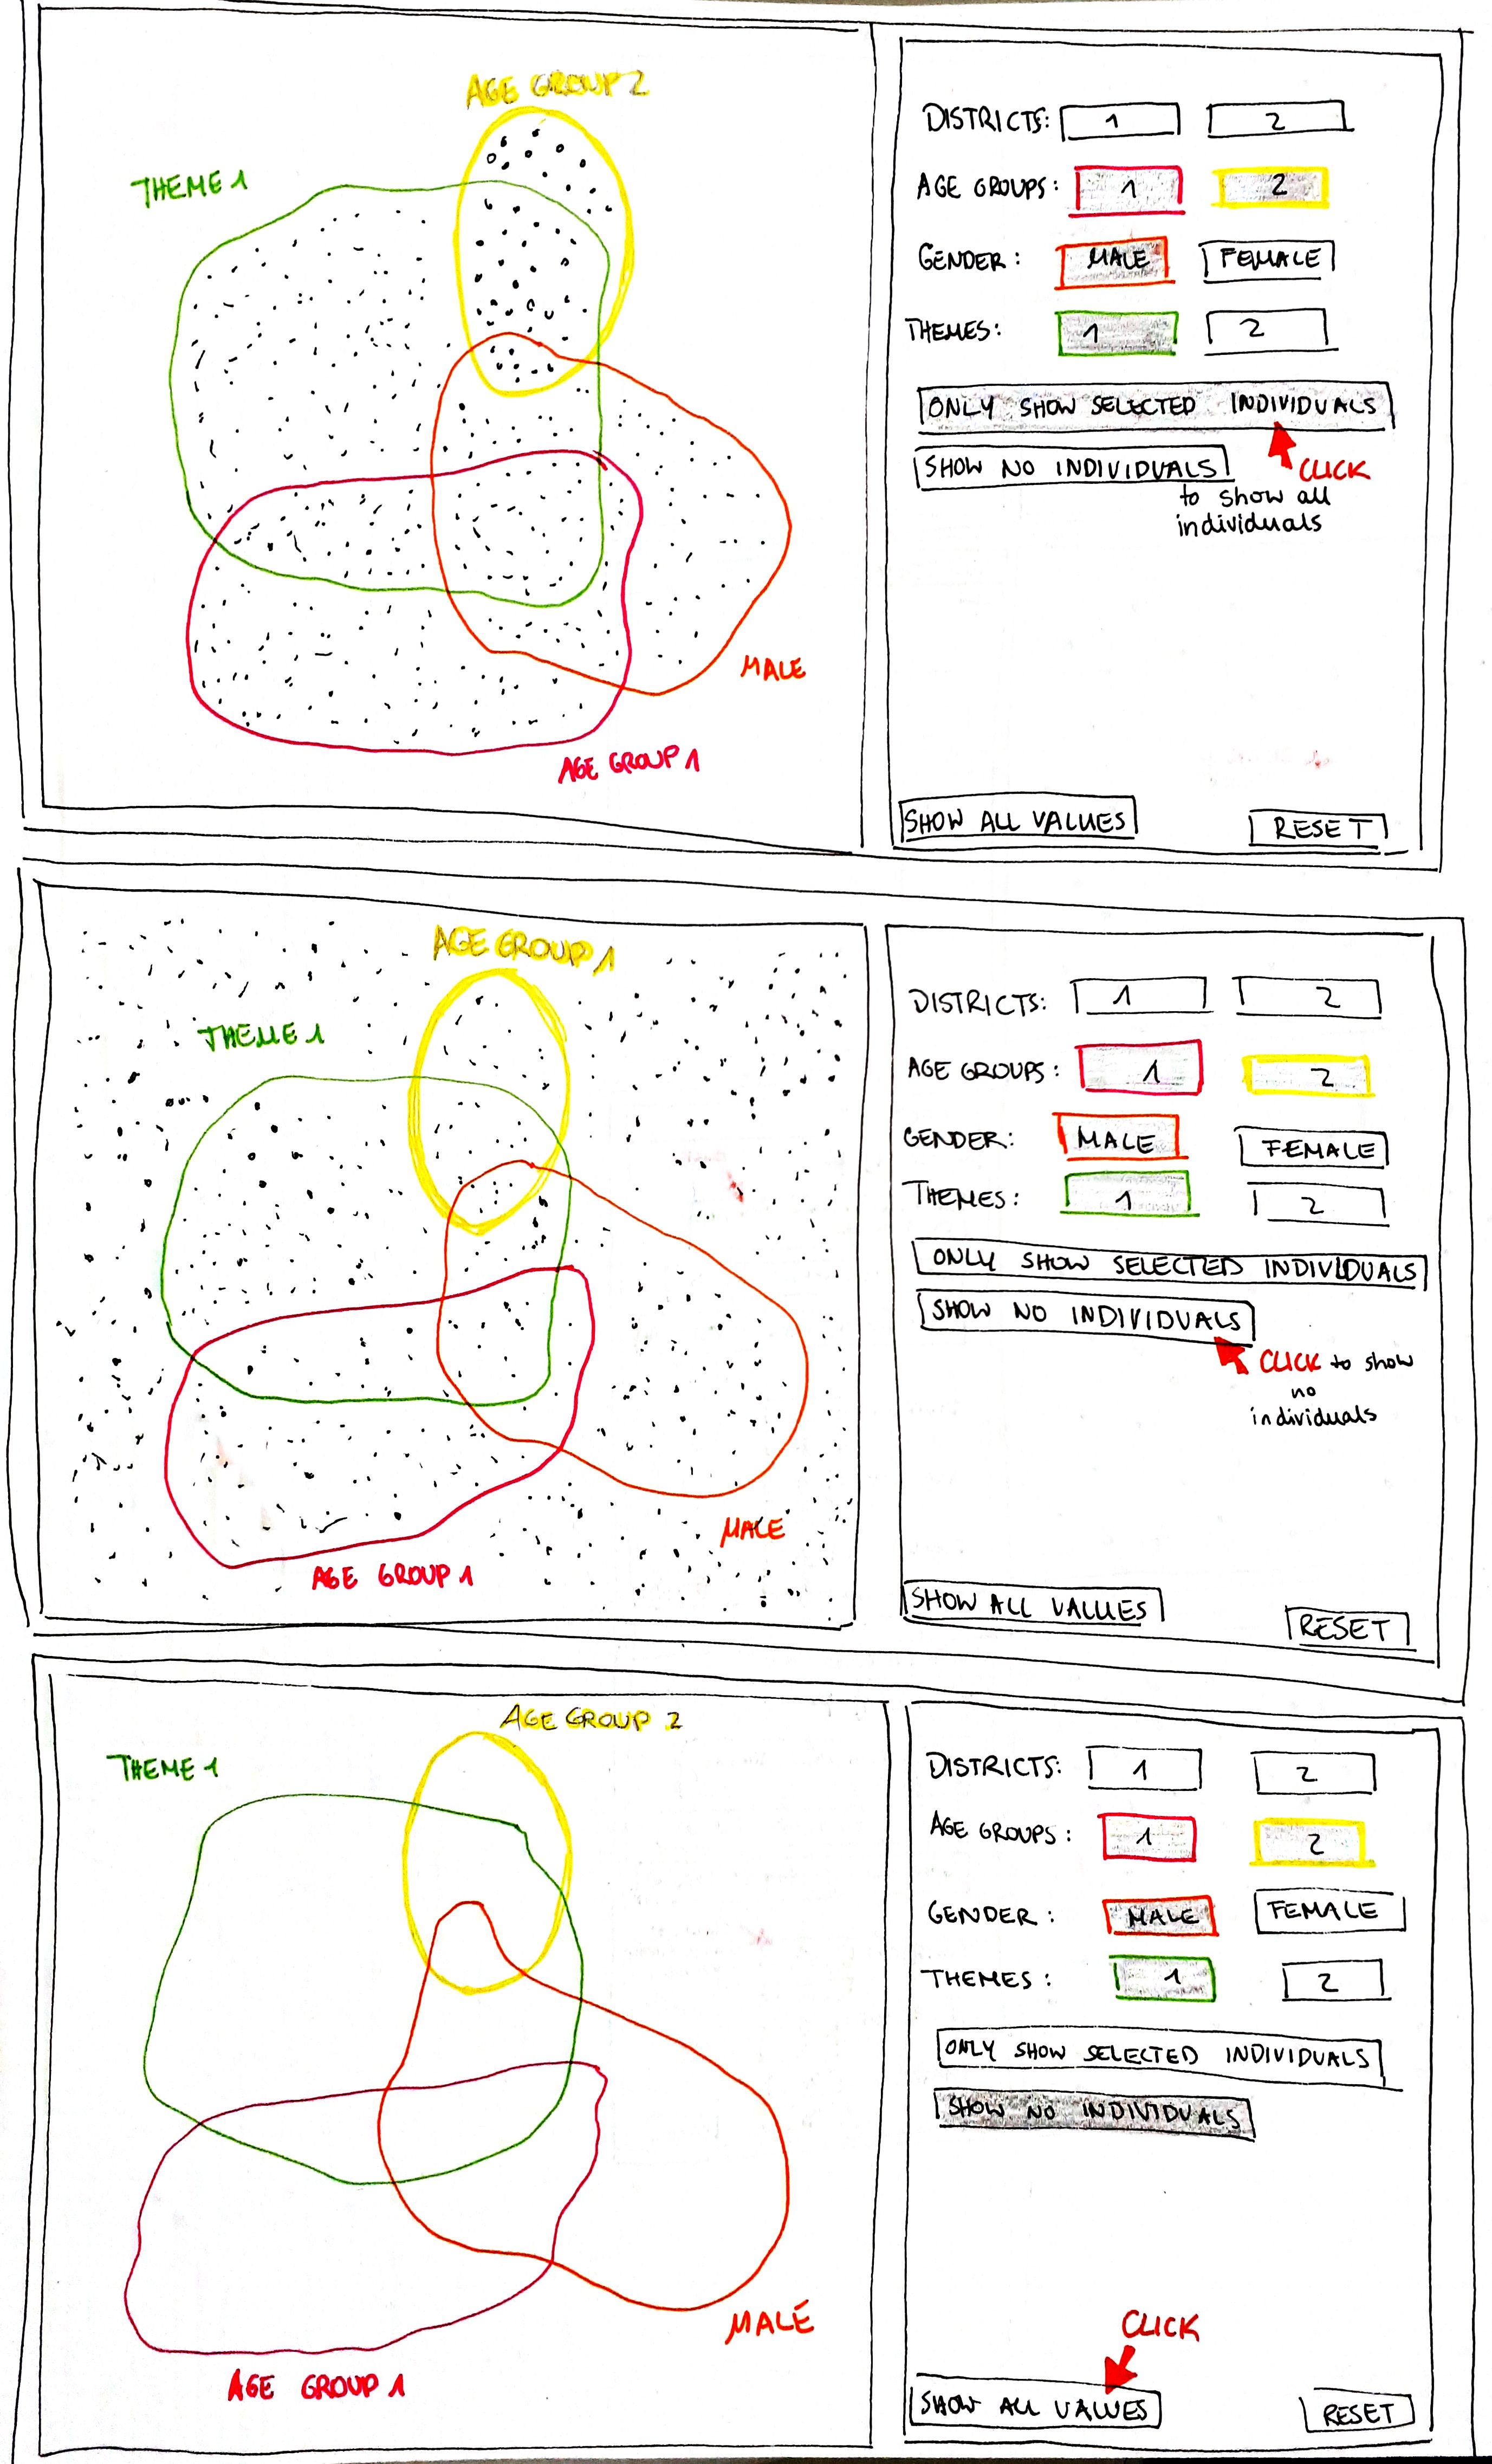 AGE GROUP 2
THEME 1
MALE
AGE GROUP 1
DISTRICTS: 1 2
AGE GROUPS: 1 2
GENDER: MALE FEMALE
THEMES: 1 2
ONLY SHOW SELECTED INDIVIDUALS
SHOW NO INDIVIDUALS
CLICK
to show all
individuals
SHOW ALL VALUES RESET
AGE GROUP 1
THEME 1
MALE
AGE GROUP 1
DISTRICTS: 1 2
AGE GROUPS: 1 2
GENDER: MALE FEMALE
THEMES: 1 2
ONLY SHOW SELECTED INDIVIDUALS
SHOW NO INDIVIDUALS
CLICK to show
no
individuals
SHOW ALL VALUES RESET
AGE GROUP 2
THEME 1
MALE
AGE GROUP 1
DISTRICTS: 1 2
AGE GROUPS: 1 2
GENDER: MALE FEMALE
THEMES: 1 2
ONLY SHOW SELECTED INDIVIDUALS
SHOW NO INDIVIDUALS
CLICK
SHOW ALL VALUES RESET